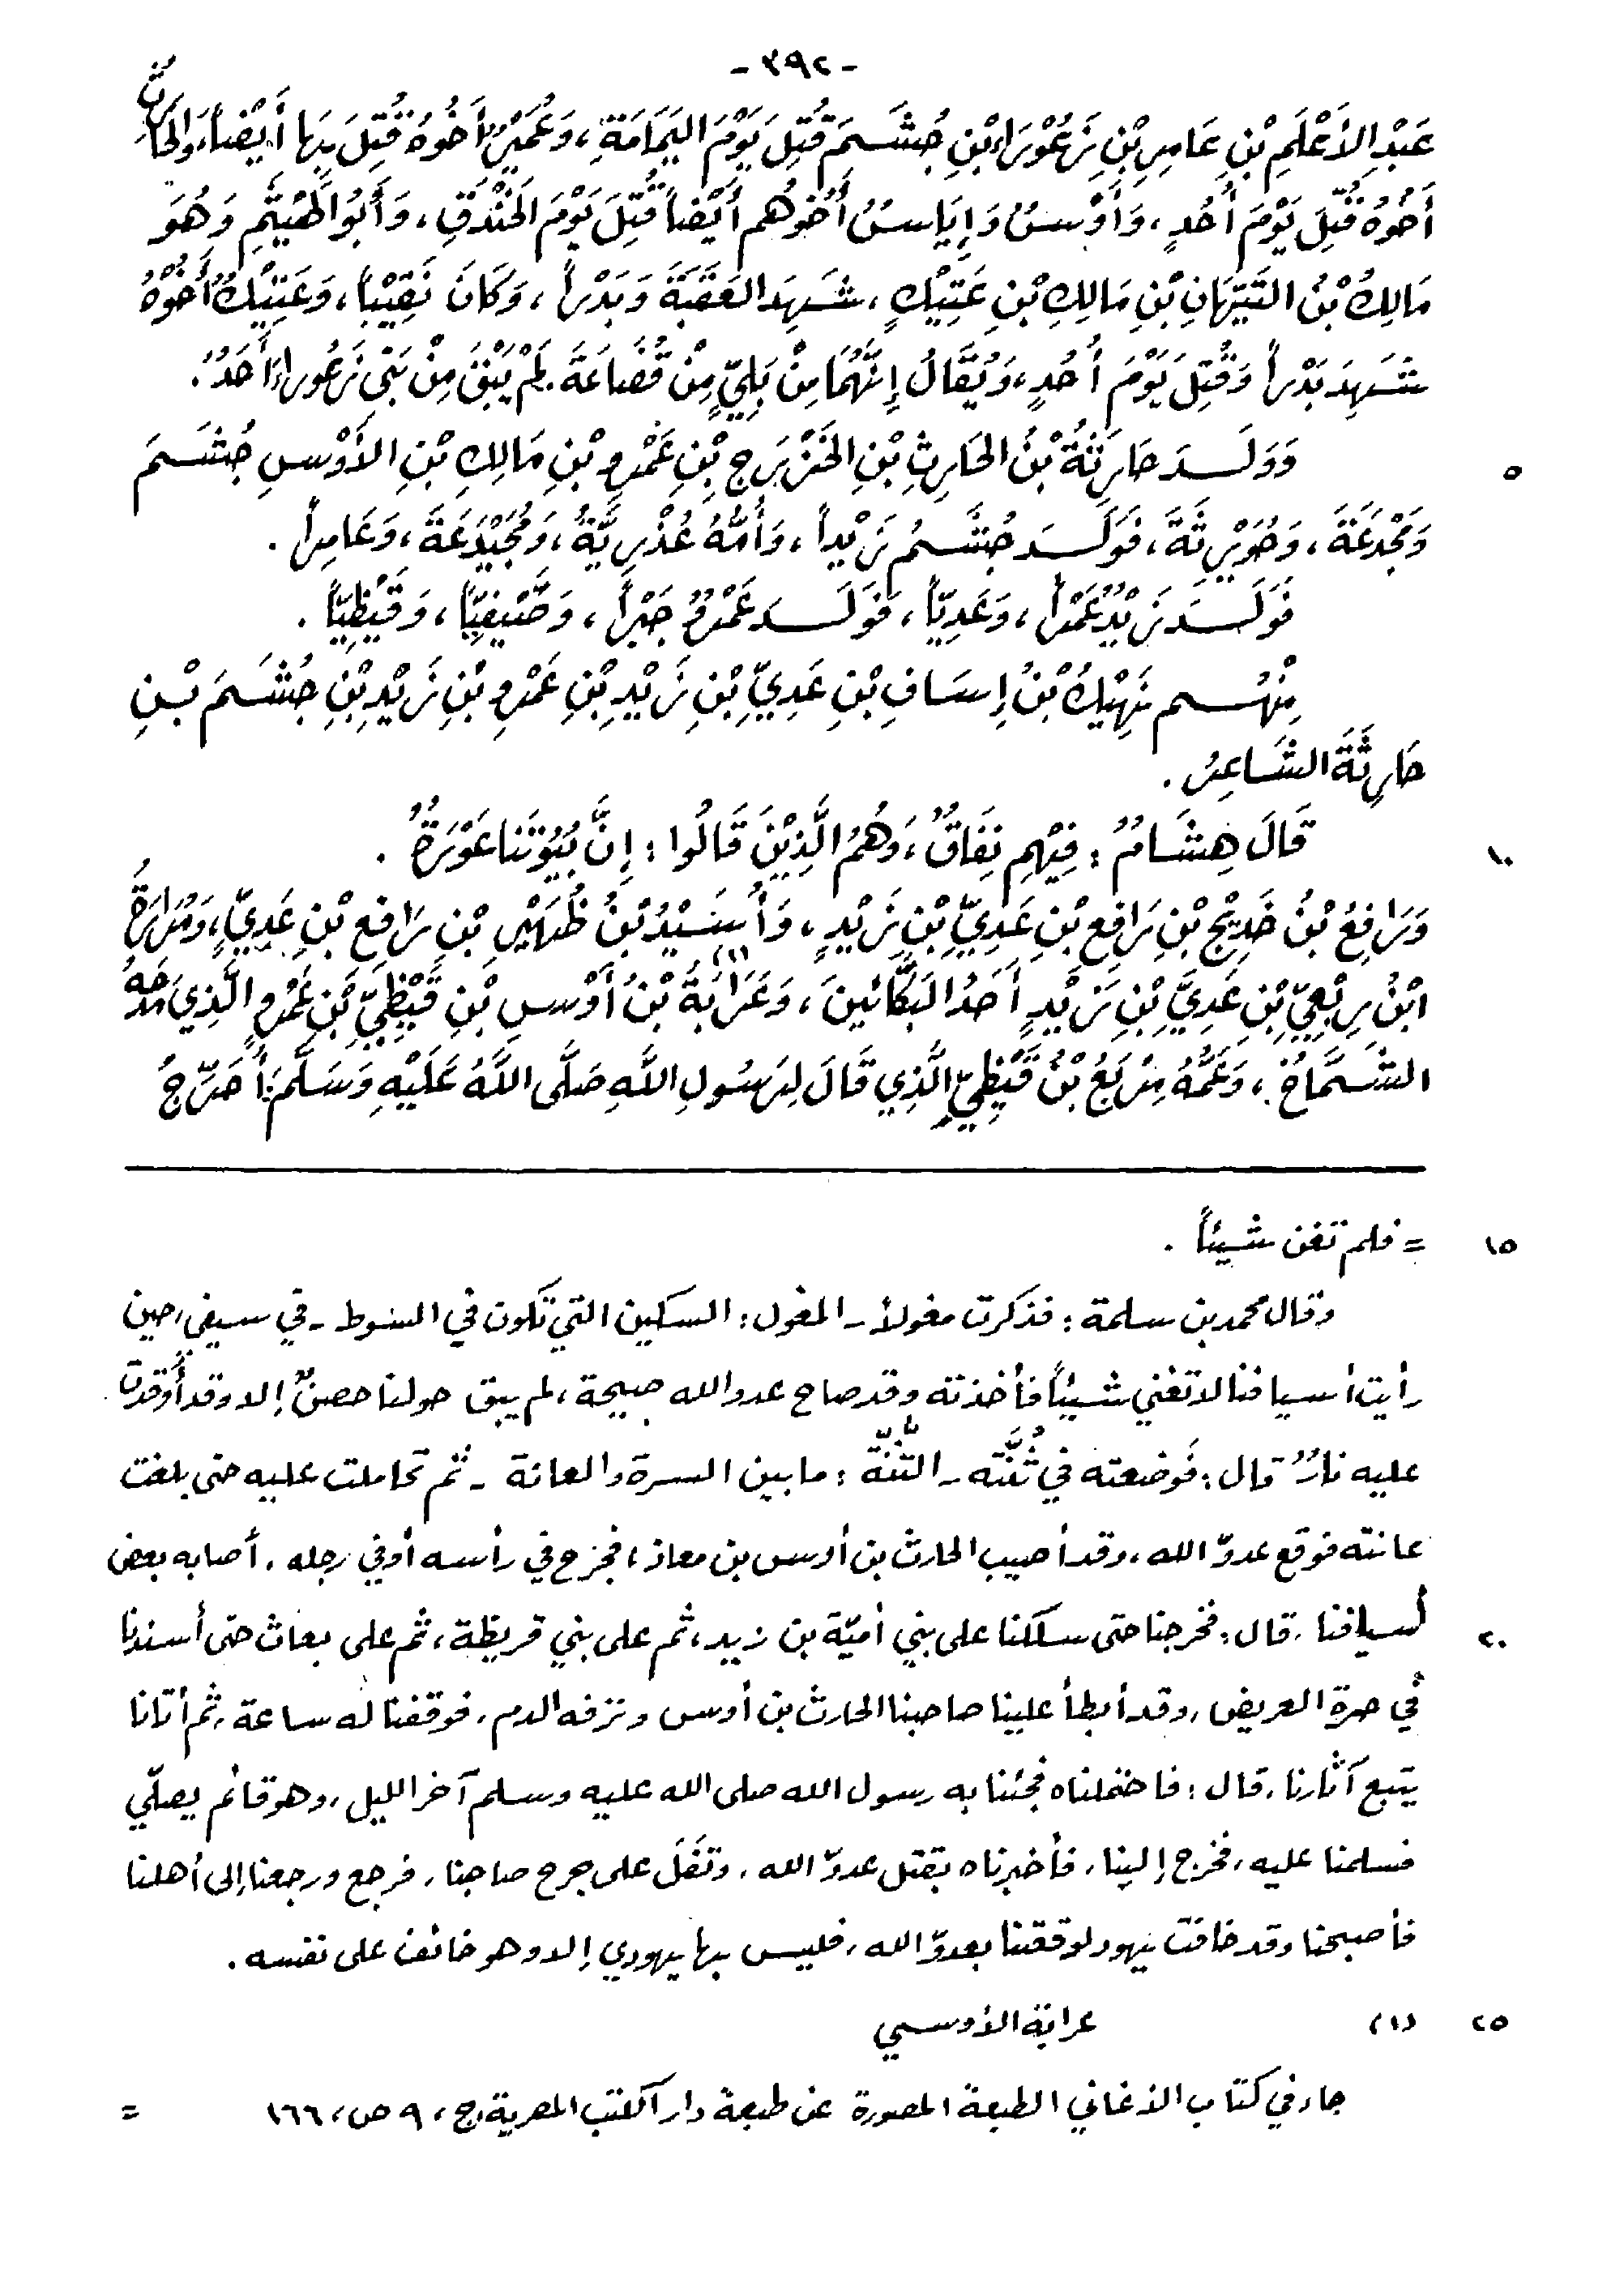 - ٣٩٢ -
عَبْدِ الأَعْلَمِ بْنِ عَامِرِ بْنِ زَعُوْرَاءَ بْنِ جُشَمَ قُتِلَ يَوْمَ اليَمَامَةِ، وَعُمَيْرٌ أَخُوهُ قُتِلَ بِهَا أَيْضاً، وَالحَارِثُ
أَخُوهُ قُتِلَ يَوْمَ أُحُدٍ، وَأَوْسٌ وَإِيَاسٌ أَخُوهُم أَيْضاً قُتِلَ يَوْمَ الخَنْدَقِ، وَأَبُو الهَيْثَمِ وَهُوَ
مَالِكُ بْنُ التَّيِّهَانِ بْنِ مَالِكِ بْنِ عَتِيْكٍ، شَهِدَ العَقَبَةَ وَبَدْراً، وَكَانَ نَقِيْباً، وَعَتِيْكٌ أَخُوْهُ
شَهِدَ بَدْراً وَقُتِلَ يَوْمَ أُحُدٍ، وَيُقَالُ إِنَّهُمَا مِنْ بَلِيٍّ مِنْ قُضَاعَةَ. لَمْ يَبْقَ مِنْ بَنِي زَعُورَاءَ أَحَدٌ.
٥ وَوَلَدَ حَارِثَةُ بْنُ الحَارِثِ بْنِ الخَزْرَجِ بْنِ عَمْرِو بْنِ مَالِكِ بْنِ الأَوْسِ جُشَمَ
وَمَجْدَعَةَ، وَحُوَيْرِثَةَ، فَوَلَدَ جُشَمُ زَيْداً، وَأُمُّهُ عُذْرِيَّةٌ، وَمُجَيْدَعَةَ، وَعَامِراً.
فَوَلَدَ زَيْدٌ عَمْراً، وَعَدِيّاً، فَوَلَدَ عَمْرٌو جَبْراً، وَصَيْفِيّاً، وَقَيْظِيّاً.
مِنْهُم نَهِيْكُ بْنُ إِسَافِ بْنِ عَدِيِّ بْنِ زَيْدِ بْنِ عَمْرِو بْنِ زَيْدِ بْنِ جُشَمَ بْنِ
حَارِثَةَ الشَّاعِرُ.
١٠ قَالَ هِشَامٌ: فِيْهِم نِفَاقٌ، وَهُمُ الَّذِيْنَ قَالُوا: إِنَّ بُيُوْتَنَا عَوْرَةٌ.
وَرَافِعُ بْنُ خَدِيْجِ بْنِ رَافِعِ بْنِ عَدِيِّ بْنِ زَيْدٍ، وَأُسَيْدُ بْنُ ظُهَيْرِ بْنِ رَافِعِ بْنِ عَدِيٍّ، وَمُرَارَةُ
ابْنُ رِبْعِيِّ بْنِ عَدِيِّ بْنِ زَيْدٍ أَحَدُ البَكَّائينَ، وَعَرَابَةُ (١) بْنُ أَوْسِ بْنِ قَيْظِيِّ بْنِ عَمْرٍو الَّذِي مَدَحَهُ
الشَّمَّاخُ، وَعَمُّهُ مِرْبَعُ بْنُ قَيْظِيٍّ الَّذِي قَالَ لِرَسُولِ اللَّهِ صَلَّى اللَّهُ عَلَيْهِ وَسَلَّمَ: أُحَرِّجُ
١٥ = فلم تغن شيئاً.
وقال محمد بن سلمة: فذكرت مغولاً - المغول: السكين التي تكون في السوط - في سيفي، حين
رأيت أسيافنا لا تغني شيئاً فأخذته وقد صاح عدو الله صيحة، لم يبق حولنا حصنٌ إلا وقد أُوقدت
عليه نارٌ قال: فَوضعته في ثُنَّته - الثُّنَّة: ما بين السرة والعانة - ثم تحاملت عليه حتى بلغت
عانته فوقع عدوّ الله، وقد أصيب الحارث بن أوس بن معاذ، فجرح في رأسه أو في رجله، أصابه بعض
٢٠ أسيافنا، قال: فخرجنا حتى سلكنا على بني أميّة بن زيد، ثم على بني قريظة، ثم على بعاث حتى أسندنا
في حرة العريض، وقد أبطأ علينا صاحبنا الحارث بن أوس ونزفه الدم، فوقفنا له ساعة، ثم أتانا
يتبع آثارنا، قال: فاحتملناه فجئنا به رسول الله صلى الله عليه وسلم آخر الليل، وهو قائم يصلّي
فسلمنا عليه، فخرج إلينا، فأخبرناه بقتل عدوّ الله، وتَفَلَ على جرح صاحبنا، فرجع ورجعنا إلى أهلنا
فأصبحنا وقد خافت يهود لوقعتنا بعدوّ الله، فليس بها يهودي إلا وهو خائف على نفسه.
٢٥ (١) عرابة الأوسي
جاء في كتاب الأغاني الطبعة المصورة عن طبعة دار الكتب المصرية، ج، ٩ ص، ١٦٦ =